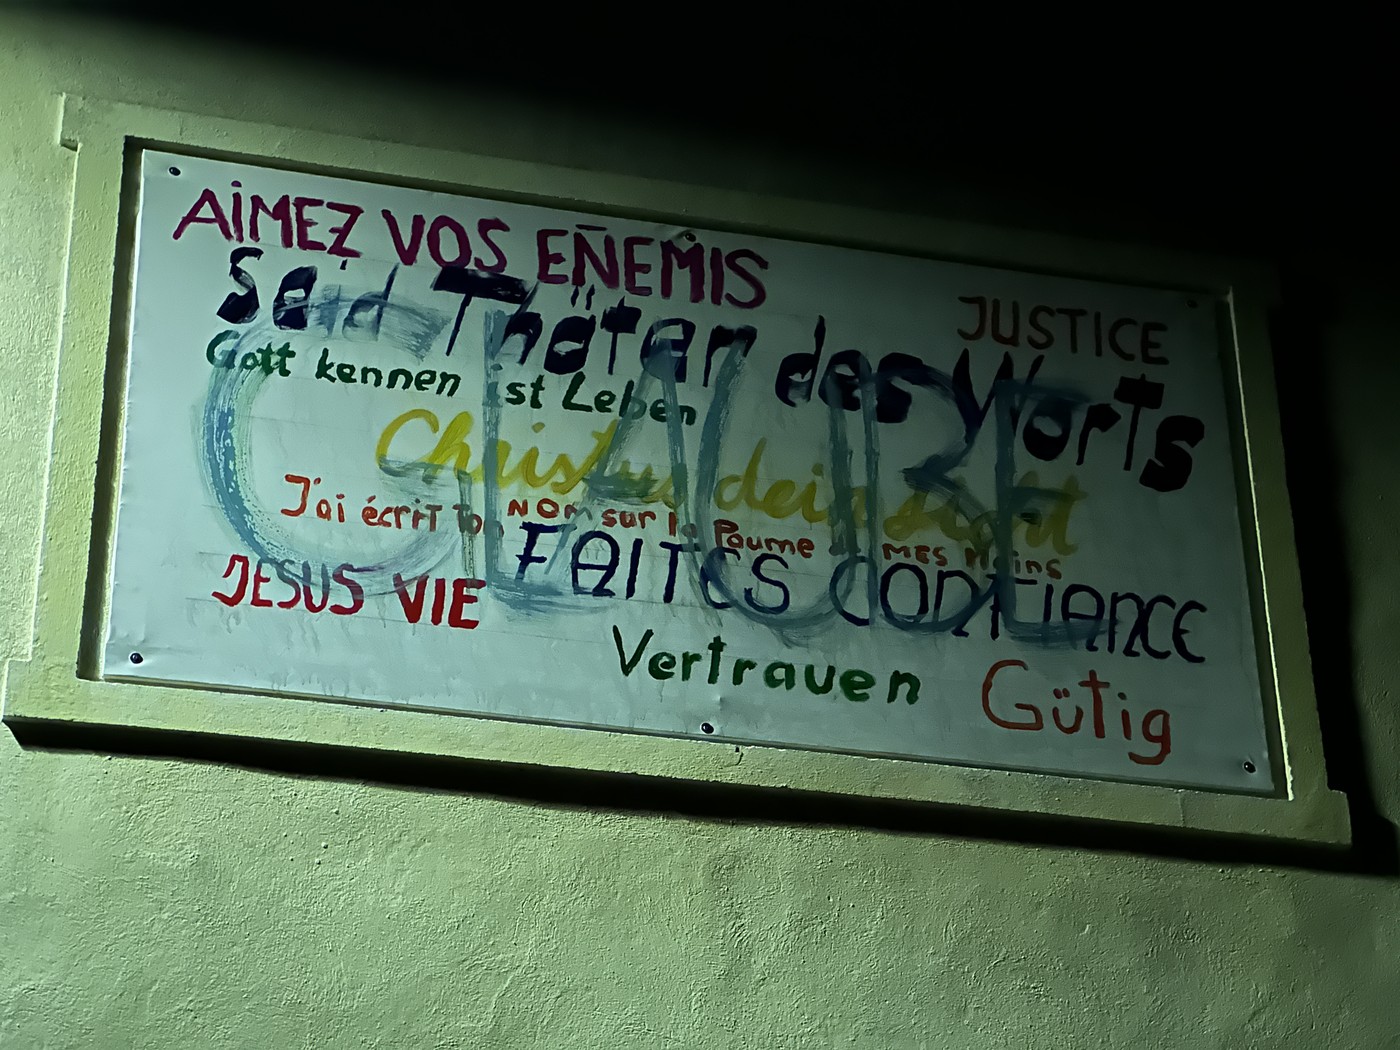 AiMEZ VOS EÑEMIS
JUSTICE
Seid Thäter des Worts
Gott kennen ist Leben
Christus dein Licht
J'ai écrit ton NOM sur la Paume de MES Mains
GLAUBE
FAITES CONFIANCE
JESUS VIE
Vertrauen
Gütig